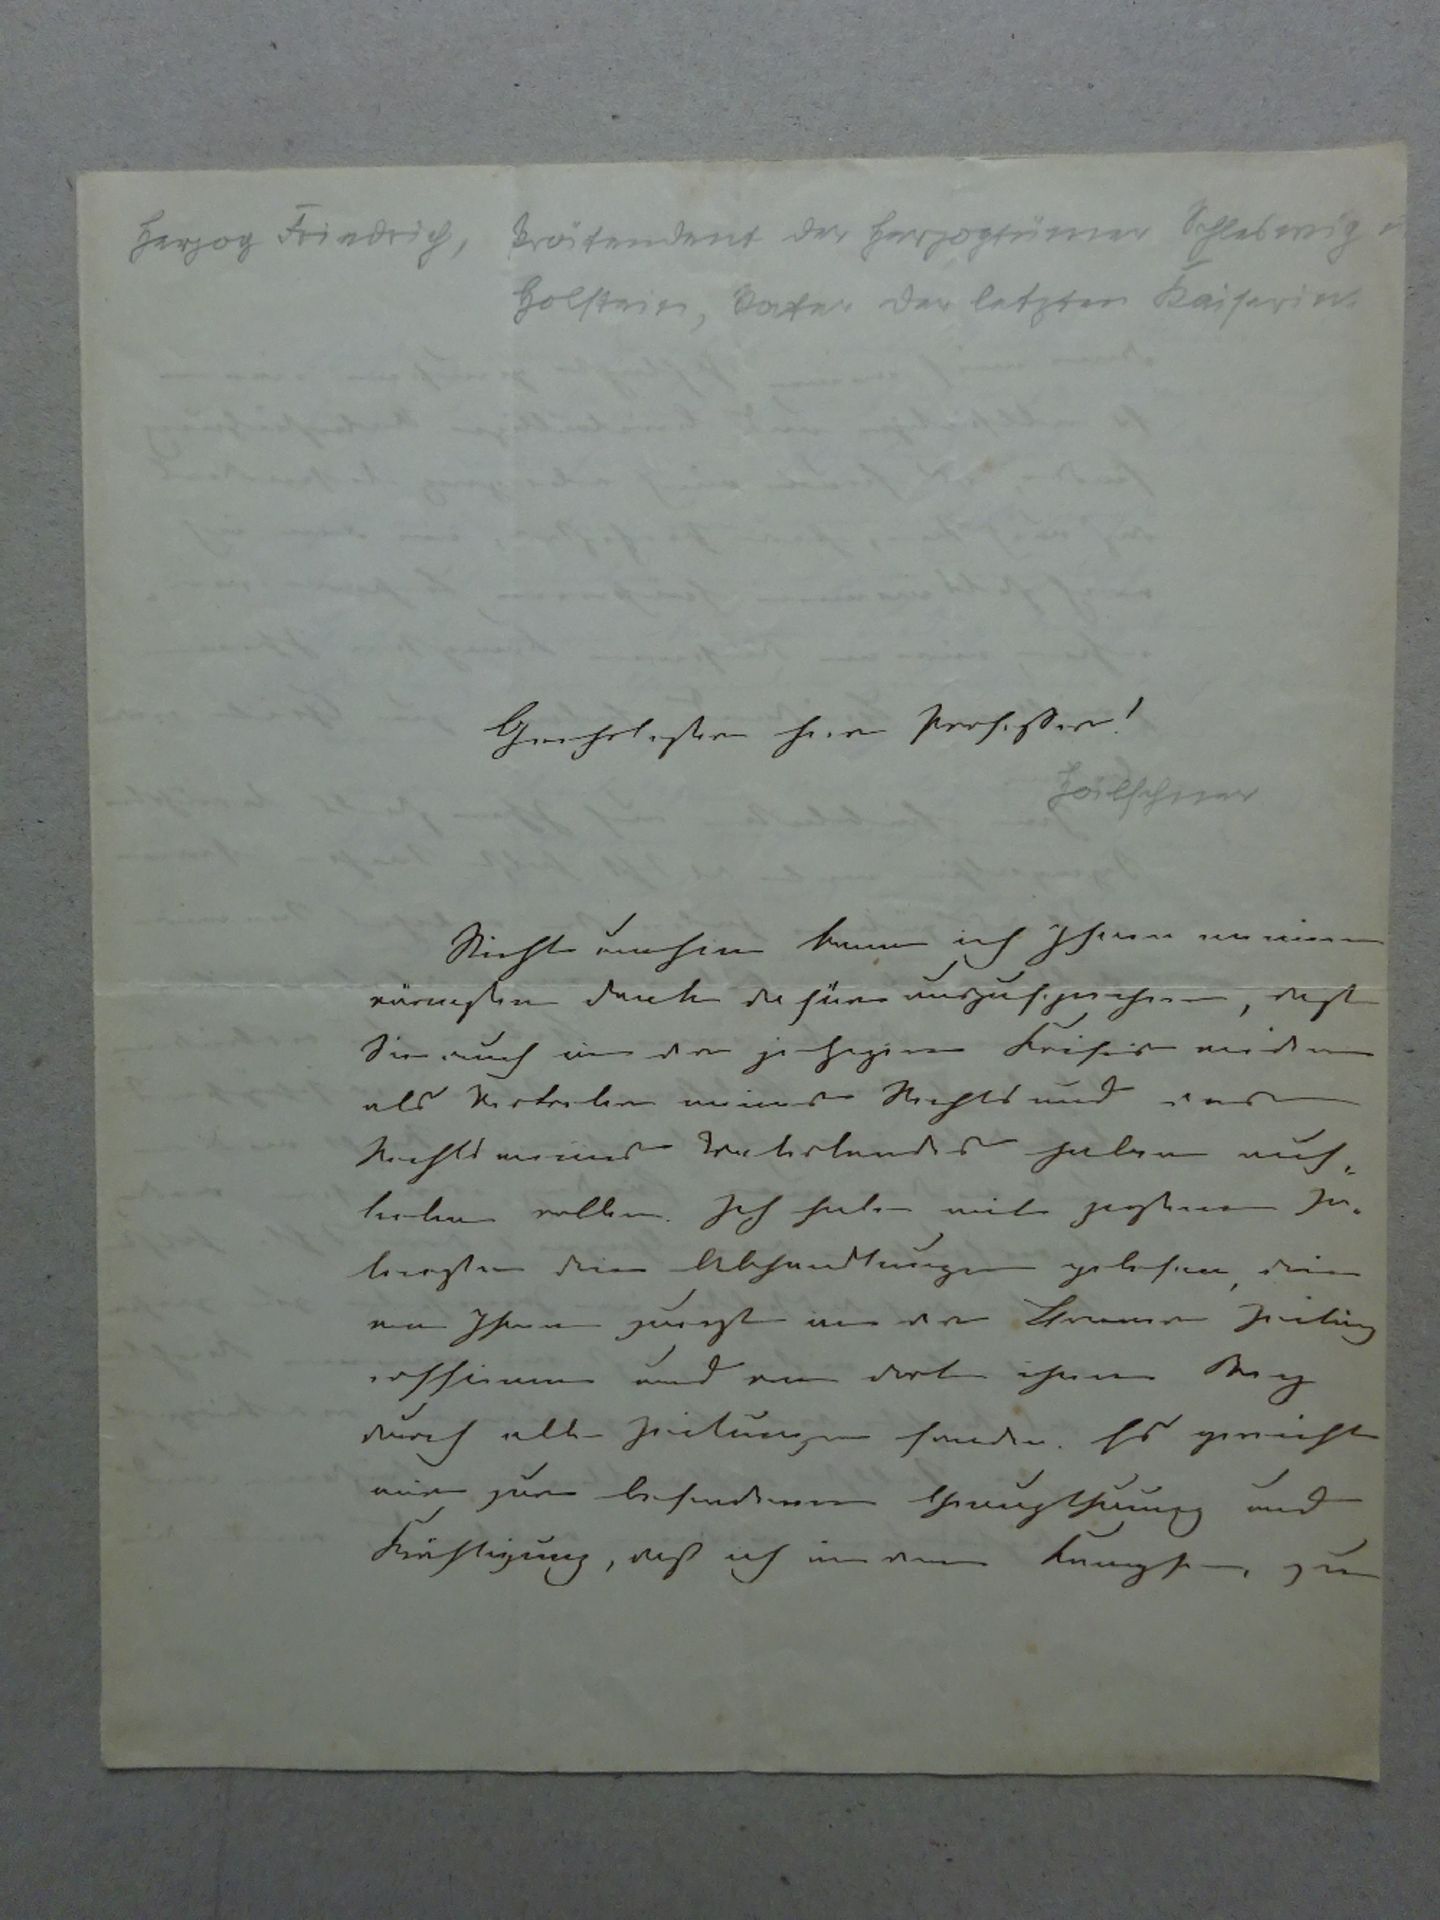 Herzog Friedrich, Prätendent der Herzogtümer Schleswig u
Holstein, Vater der letzten Kaiserin.
Geehrtester Herr Professor!
Hälschner
Nicht umhin kann ich Ihnen meinen
wärmsten Dank dafür auszusprechen, daß
Sie auch in der jetzigen Krisis wieder
als Vertreter meines Rechts und des
Rechts meines Vaterlandes haben auf-
treten wollen. Ich habe mit großem In-
teresse die Abhandlungen gelesen, die
von Ihnen zuerst in der Bonner Zeitung
erschienen und von dort ihren Weg
durch alle Zeitungen fanden. Es gereicht
mir zur besonderen Genugthuung und
Kräftigung, daß ich in dem Kampfe, zu